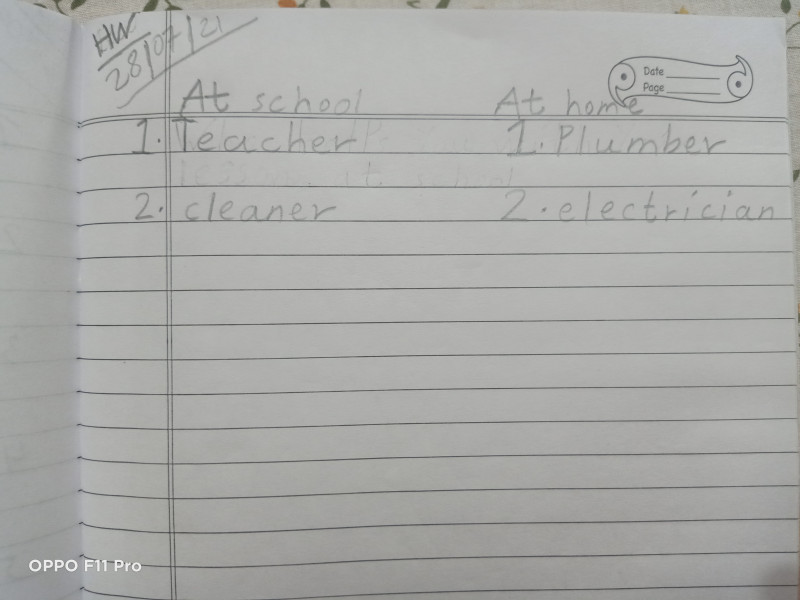 HW
28/07/21
Date
Page
At school At home
1. Teacher 1. Plumber
2. cleaner 2. electrician
OPPO F11 Pro